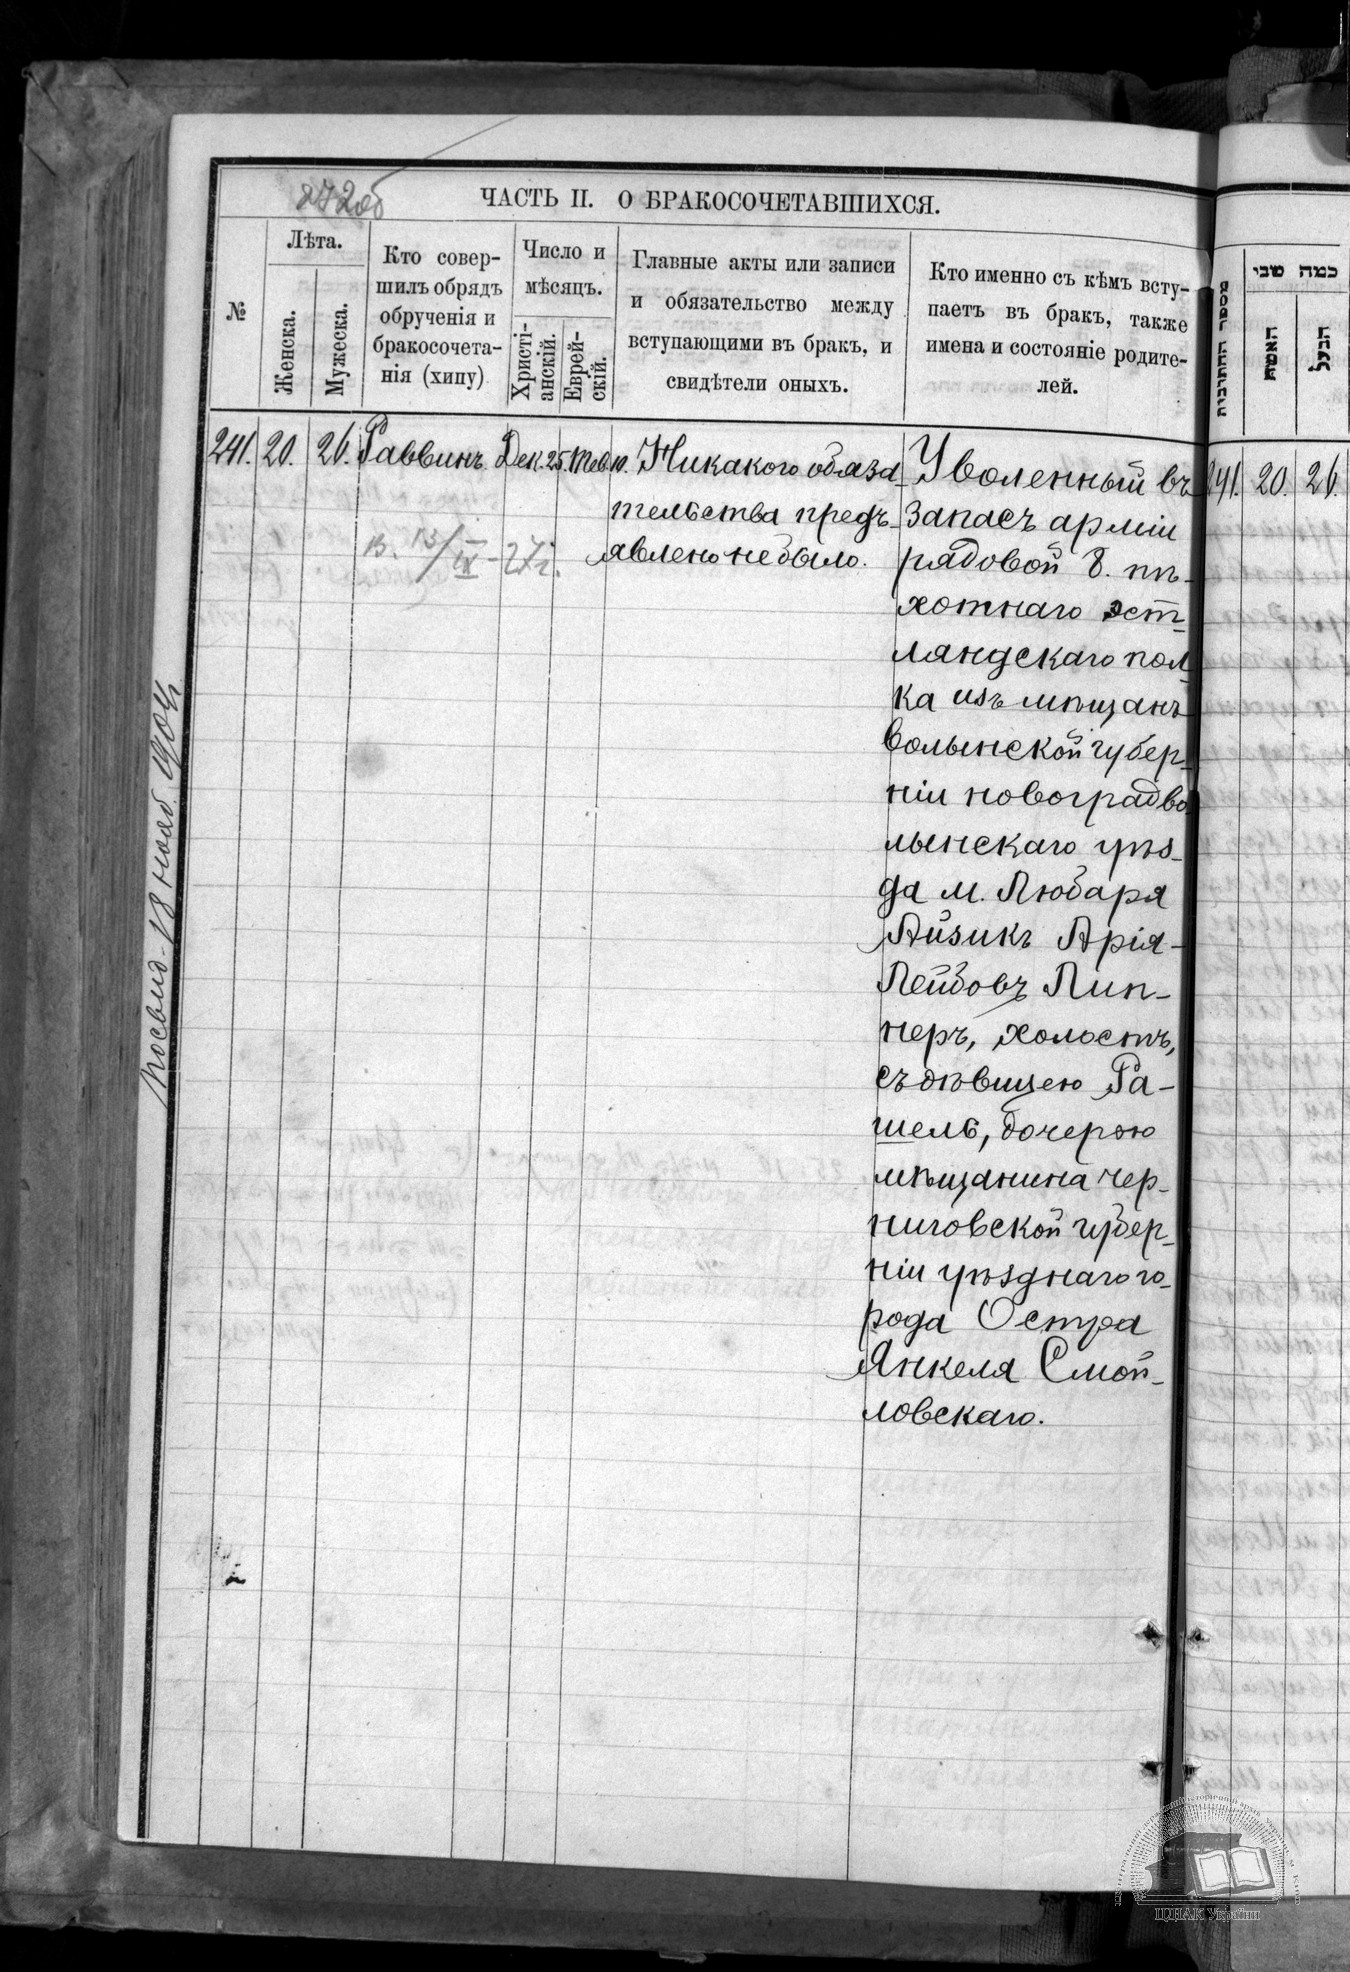 272об
ЧАСТЬ II. О БРАКОСОЧЕТАВШИХСЯ.
№
Лѣта.
Женска.
Мужеска.
Кто совер-
шилъ обрядъ
обрученія и
бракосочета-
нія (хипу)
Число и
мѣсяцъ.
Христі-
анскій.
Еврей-
скій.
Главные акты или записи
и обязательство между
вступающими въ бракъ, и
свидѣтели оныхъ.
Кто именно съ кѣмъ всту-
паетъ въ бракъ, также
имена и состояніе родите-
лей.
241. 20. 26. Раввинъ Дек. 25. Тев. 10.
Никакого обяза-
тельства предъ-
явлено не было.
в. 13/IX-27г.
Уволенный въ
запасъ арміи
рядовой 8. пѣ-
хотнаго эст-
ляндскаго пол-
ка изъ мѣщанъ
волынской губер-
ніи новоградво-
лынскаго уѣз-
да м. Любаря
Айзикъ Арія-
Лейбовъ Лип-
неръ, холостъ,
съ дѣвицею Ра-
шель, дочерью
мѣщанина чер-
ниговской губер-
ніи уѣзднаго го-
рода Остра
Янкеля Смой-
ловскаго.
посвид. 18 нояб. 1904
מספר החתונות
כמה שני
האשה
הבעל
241. 20. 26.
ЦДІАК України